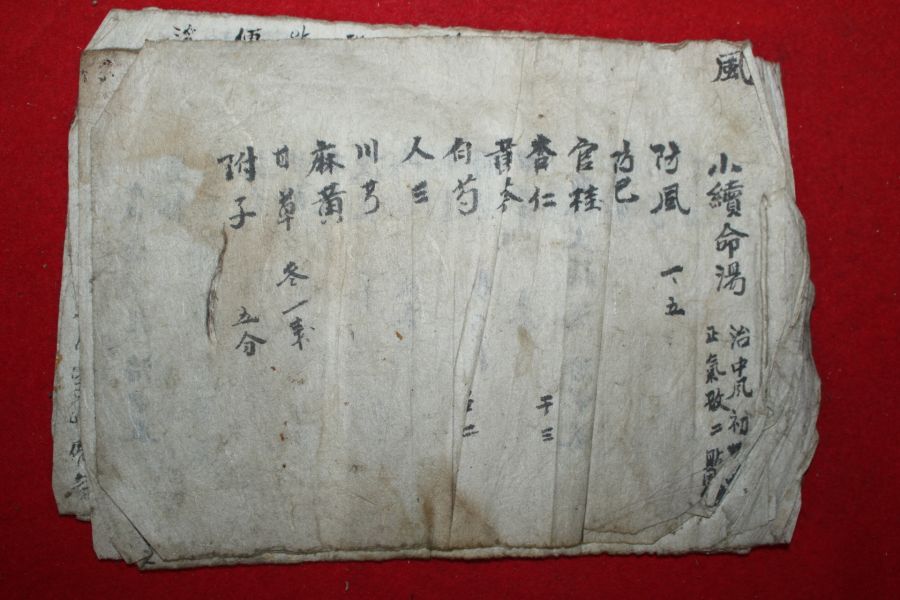 風
小續命湯 治中風初
正氣散二點
防風 一、五
防己
官桂
杏仁 干三
黃芩
白芍 召二
人三
川芎
麻黃
甘草 各一戔
附子 五分